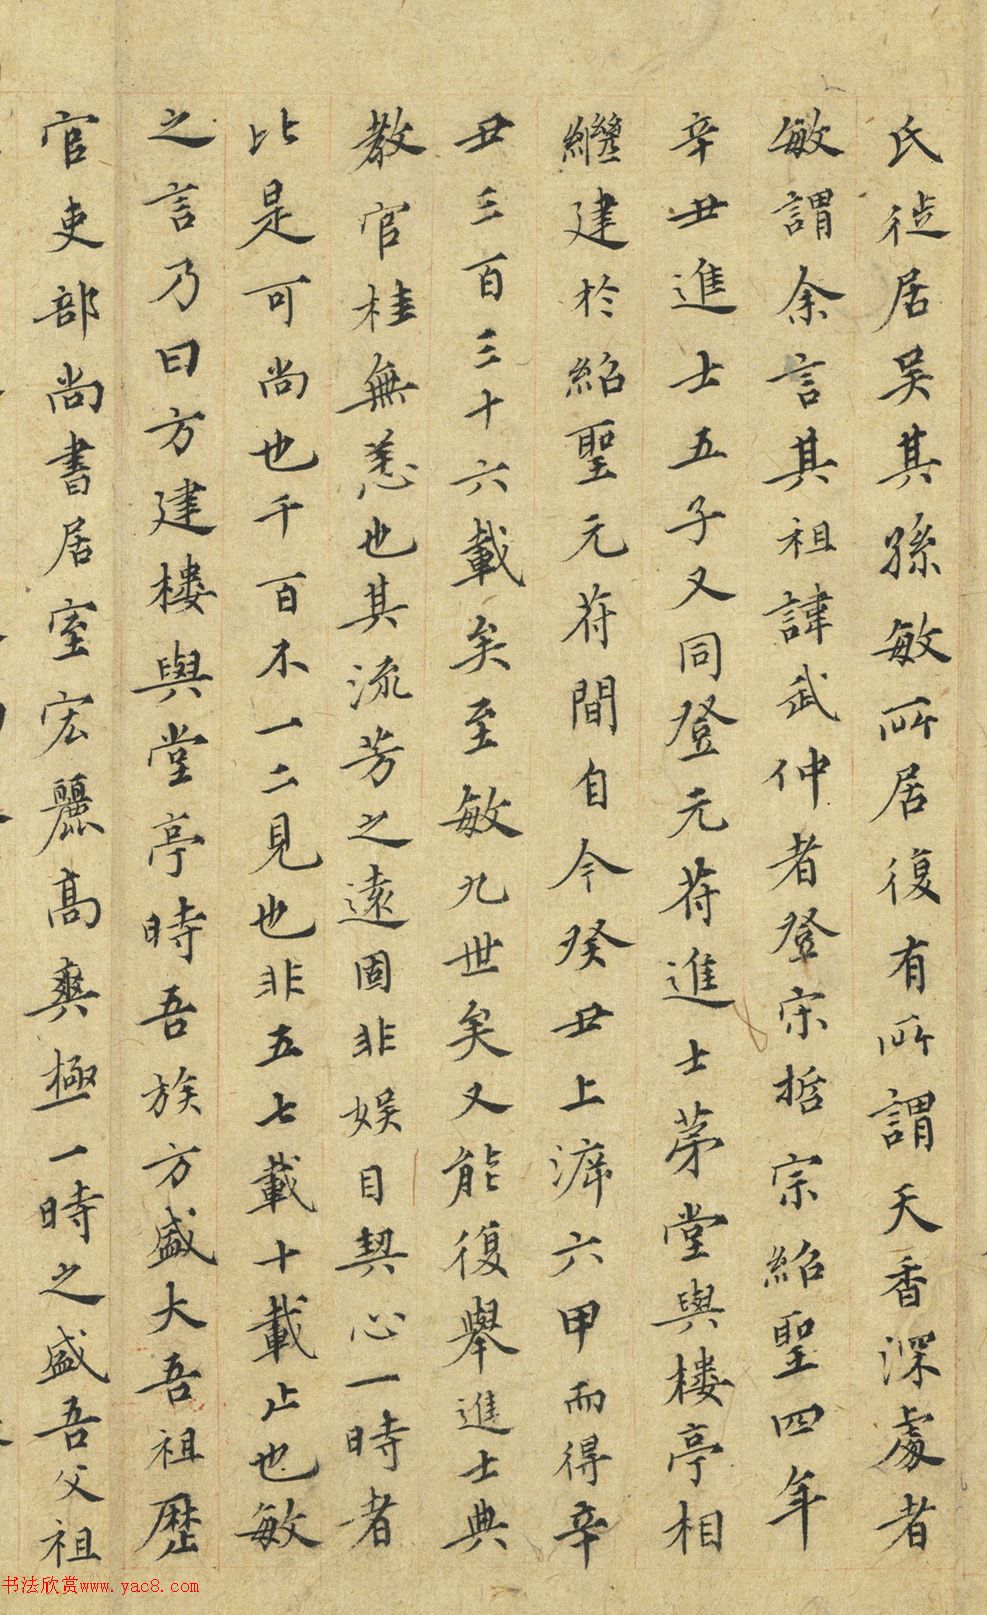 氏徙居吳其孫敏所居復有所謂天香深處者
敏謂余言其祖諱武仲者登宋哲宗紹聖四年
辛丑進士五子又同登元苻進士茅堂與樓亭相
繼建於紹聖元苻間自今癸丑上遡六甲而得辛
丑三百三十六載矣至敏九世矣又能復舉進士典
教官桂無恙也其流芳之遠固非娛目契心一時者
比是可尚也千百不一二見也非五七載十載止也敏
之言乃曰方建樓與堂亭時吾族方盛大吾祖歷
官吏部尚書居室宏麗高爽極一時之盛吾父祖
书法欣赏www.yac8.com